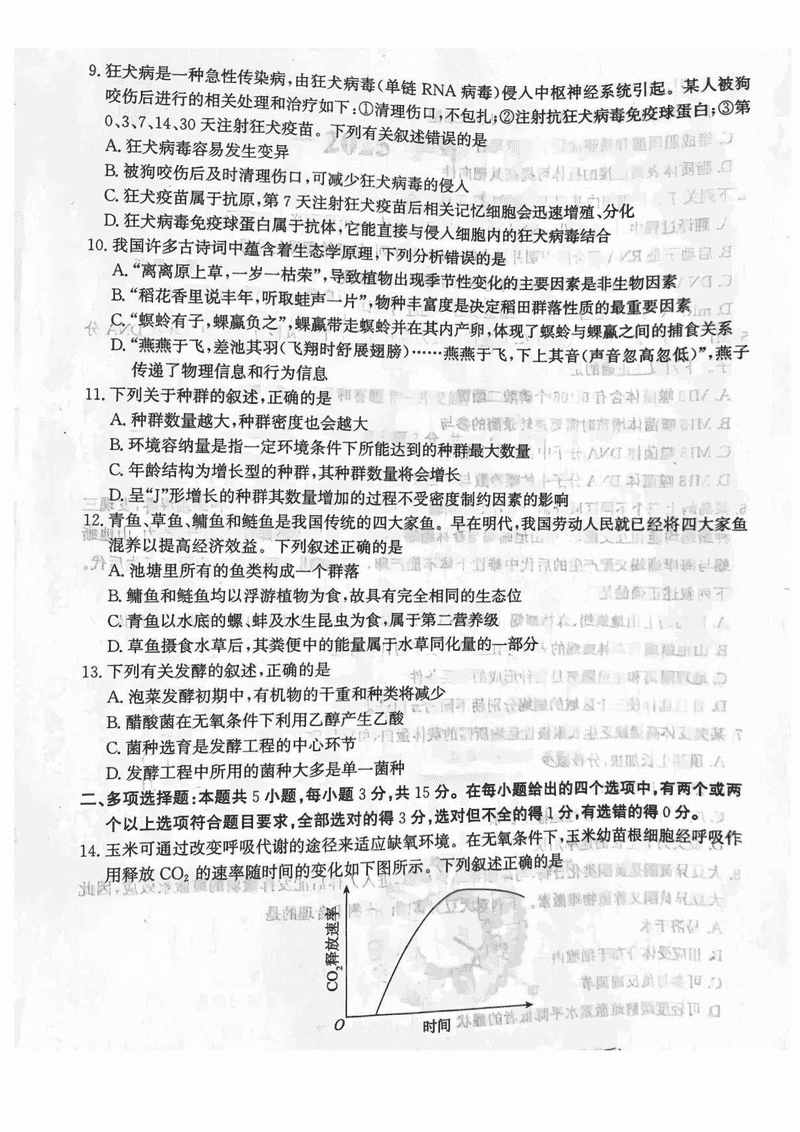 9. 狂犬病是一种急性传染病,由狂犬病毒(单链 RNA 病毒)侵入中枢神经系统引起。某人被狗
咬伤后进行的相关处理和治疗如下:①清理伤口,不包扎;②注射抗狂犬病毒免疫球蛋白;③第
0、3、7、14、30 天注射狂犬疫苗。下列有关叙述错误的是
A. 狂犬病毒容易发生变异
B. 被狗咬伤后及时清理伤口,可减少狂犬病毒的侵入
C. 狂犬疫苗属于抗原,第 7 天注射狂犬疫苗后相关记忆细胞会迅速增殖、分化
D. 狂犬病毒免疫球蛋白属于抗体,它能直接与侵入细胞内的狂犬病毒结合
10. 我国许多古诗词中蕴含着生态学原理,下列分析错误的是
A. “离离原上草,一岁一枯荣”,导致植物出现季节性变化的主要因素是非生物因素
B. “稻花香里说丰年,听取蛙声一片”,物种丰富度是决定稻田群落性质的最重要因素
C. “螟蛉有子,蜾蠃负之”,蜾蠃带走螟蛉并在其内产卵,体现了螟蛉与蜾蠃之间的捕食关系
D. “燕燕于飞,差池其羽(飞翔时舒展翅膀)……燕燕于飞,下上其音(声音忽高忽低)”,燕子
传递了物理信息和行为信息
11. 下列关于种群的叙述,正确的是
A. 种群数量越大,种群密度也会越大
B. 环境容纳量是指一定环境条件下所能达到的种群最大数量
C. 年龄结构为增长型的种群,其种群数量将会增长
D. 呈“J”形增长的种群其数量增加的过程不受密度制约因素的影响
12. 青鱼、草鱼、鳙鱼和鲢鱼是我国传统的四大家鱼。早在明代,我国劳动人民就已经将四大家鱼
混养以提高经济效益。下列叙述正确的是
A. 池塘里所有的鱼类构成一个群落
B. 鳙鱼和鲢鱼均以浮游植物为食,故具有完全相同的生态位
C. 青鱼以水底的螺、蚌及水生昆虫为食,属于第二营养级
D. 草鱼摄食水草后,其粪便中的能量属于水草同化量的一部分
13. 下列有关发酵的叙述,正确的是
A. 泡菜发酵初期中,有机物的干重和种类将减少
B. 醋酸菌在无氧条件下利用乙醇产生乙酸
C. 菌种选育是发酵工程的中心环节
D. 发酵工程中所用的菌种大多是单一菌种
二、多项选择题:本题共 5 小题,每小题 3 分,共 15 分。在每小题给出的四个选项中,有两个或两
个以上选项符合题目要求,全部选对的得 3 分,选对但不全的得 1 分,有选错的得 0 分。
14. 玉米可通过改变呼吸代谢的途径来适应缺氧环境。在无氧条件下,玉米幼苗根细胞经呼吸作
用释放 CO₂ 的速率随时间的变化如下图所示。下列叙述正确的是
CO₂释放速率
O
时间